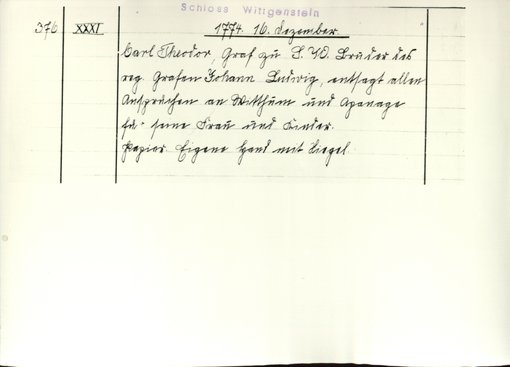 Schloss Wittgenstein
376 XXXI 1774. 16. Dezember.
Carl Theodor, Graf zu S. W. Bruder des
reg. Grafen Johann Ludwig, entsagt allen
Ansprüchen an Witthum und Apanage
für seine Frau und Kinder.
Papier Eigene Hand mit Siegel